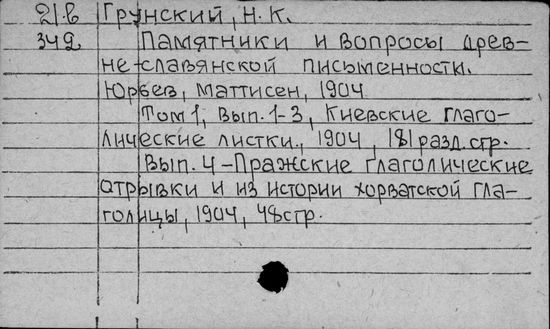 21.б Грунский, Н. К.
342 Памятники и вопросы древ-
не-славянской письменности.
Юрьев, Маттисен, 1904
Том 1, Вып. 1-3, Киевские глаго-
лические листки., 1904, 181 разд. стр.
Вып. 4 - Пражские глаголические
отрывки и из истории хорватской гла-
голицы, 1904, 48 стр.